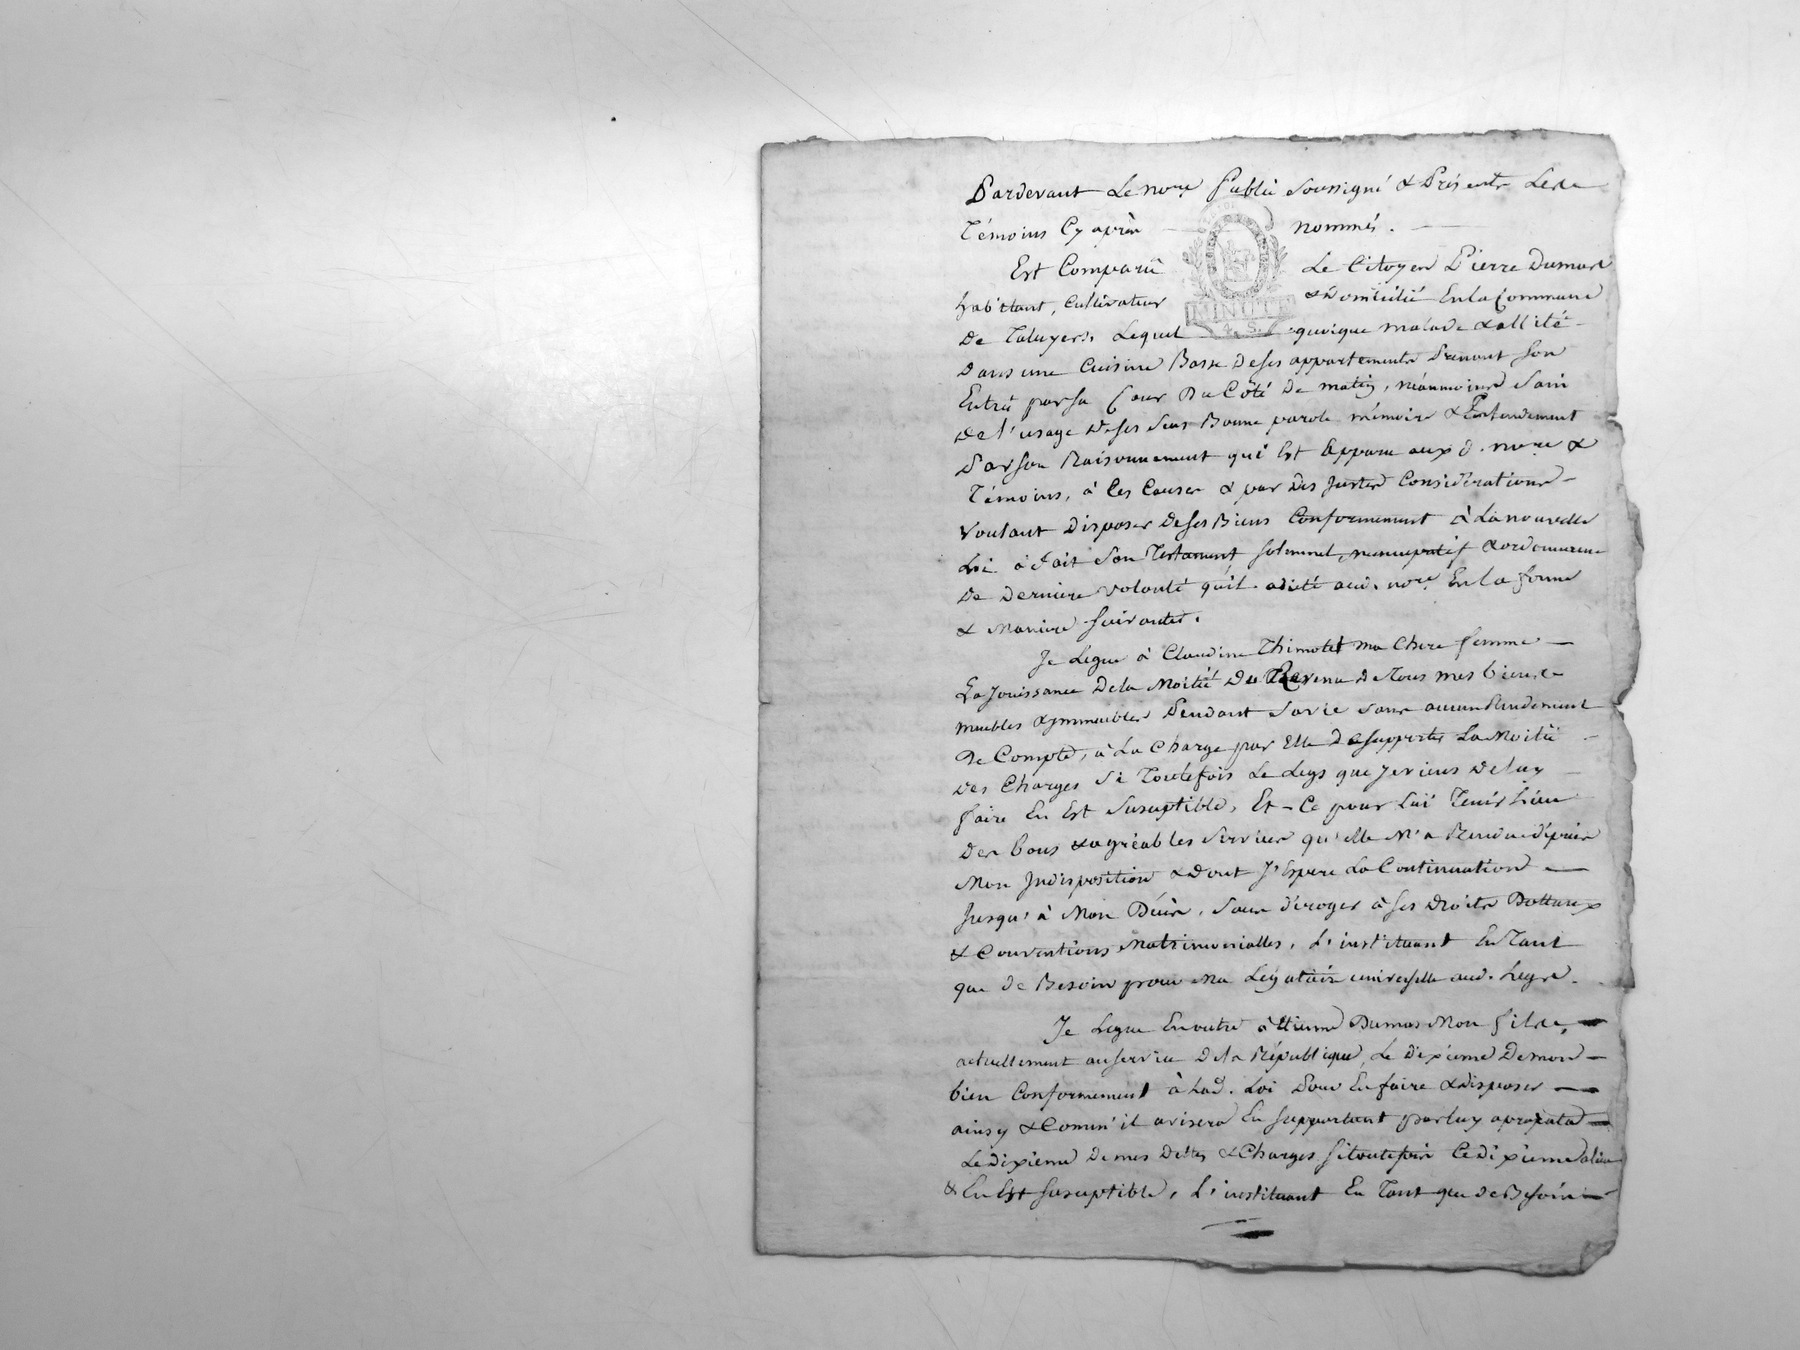 Pardevant Le nore Public Soussigné & Présents Les
Témoins Cy après nommés.
Est Comparû Le Citoyen Pierre Dumas
habittant, cultivateur & Domicilié En la Commune
MINUTE
De Taluyers, Lequel quoique malade & allité
4. S.
Dans une Cuisine Basse De ses appartements Prenant son
Entrée par sa Cour Du Côté De matin, néanmoins Sain
De l'usage De ses Sens Bonne parole mémoire & Entendement
Par son Raisonnement qui Est apparu aux d. nore &
Témoins, à Ces Causes & par Des Justes Considerations
Voulant Disposer De ses Biens Conformement à La nouvelle
Loi à fait Son Testament solemnel, nuncupatif & ordonnance
De Derniere volonté qu'il a dicté aud. nore En la forme
& Maniere suivantes.
Je Legue à Claudine Thimotet ma Chere femme
La Jouissance De la Moitié Du Revenu de Tous mes biens
meubles & immeubles Pendant Sa vie sans aucun Rendement
De Compte, à La Charge par Elle De supporter La Moitié
Des Charges Si Toutefois Le Legs que Je viens De luy
faire En Est Suseptible, Et Ce pour Lui Tenir Lieu
Des bons & agréables Services qu'elle M'a Rendu dépuis
Mon Indisposition & Dont J'Espere La Continuation
Jusqu'à Mon Décès, Sans déroger à ses Droits Dottaux
& Conventions Matrimonialles, L'instituant En Tant
que De Besoin pour Ma Légataire universelle aud. Legs.
Je Legue En outre à Etienne Dumas Mon fils,
actuellement au service De la République, Le Dixieme De mon
bien Conformement à Lad. Loi Pour En faire & disposer
ainsy & Comm'il avisera En supportant par luy
Le dixieme De mes Dettes & Charges si toutefois Ce dixieme
& En Est suseptible, L'instituant En Tant que De Besoin